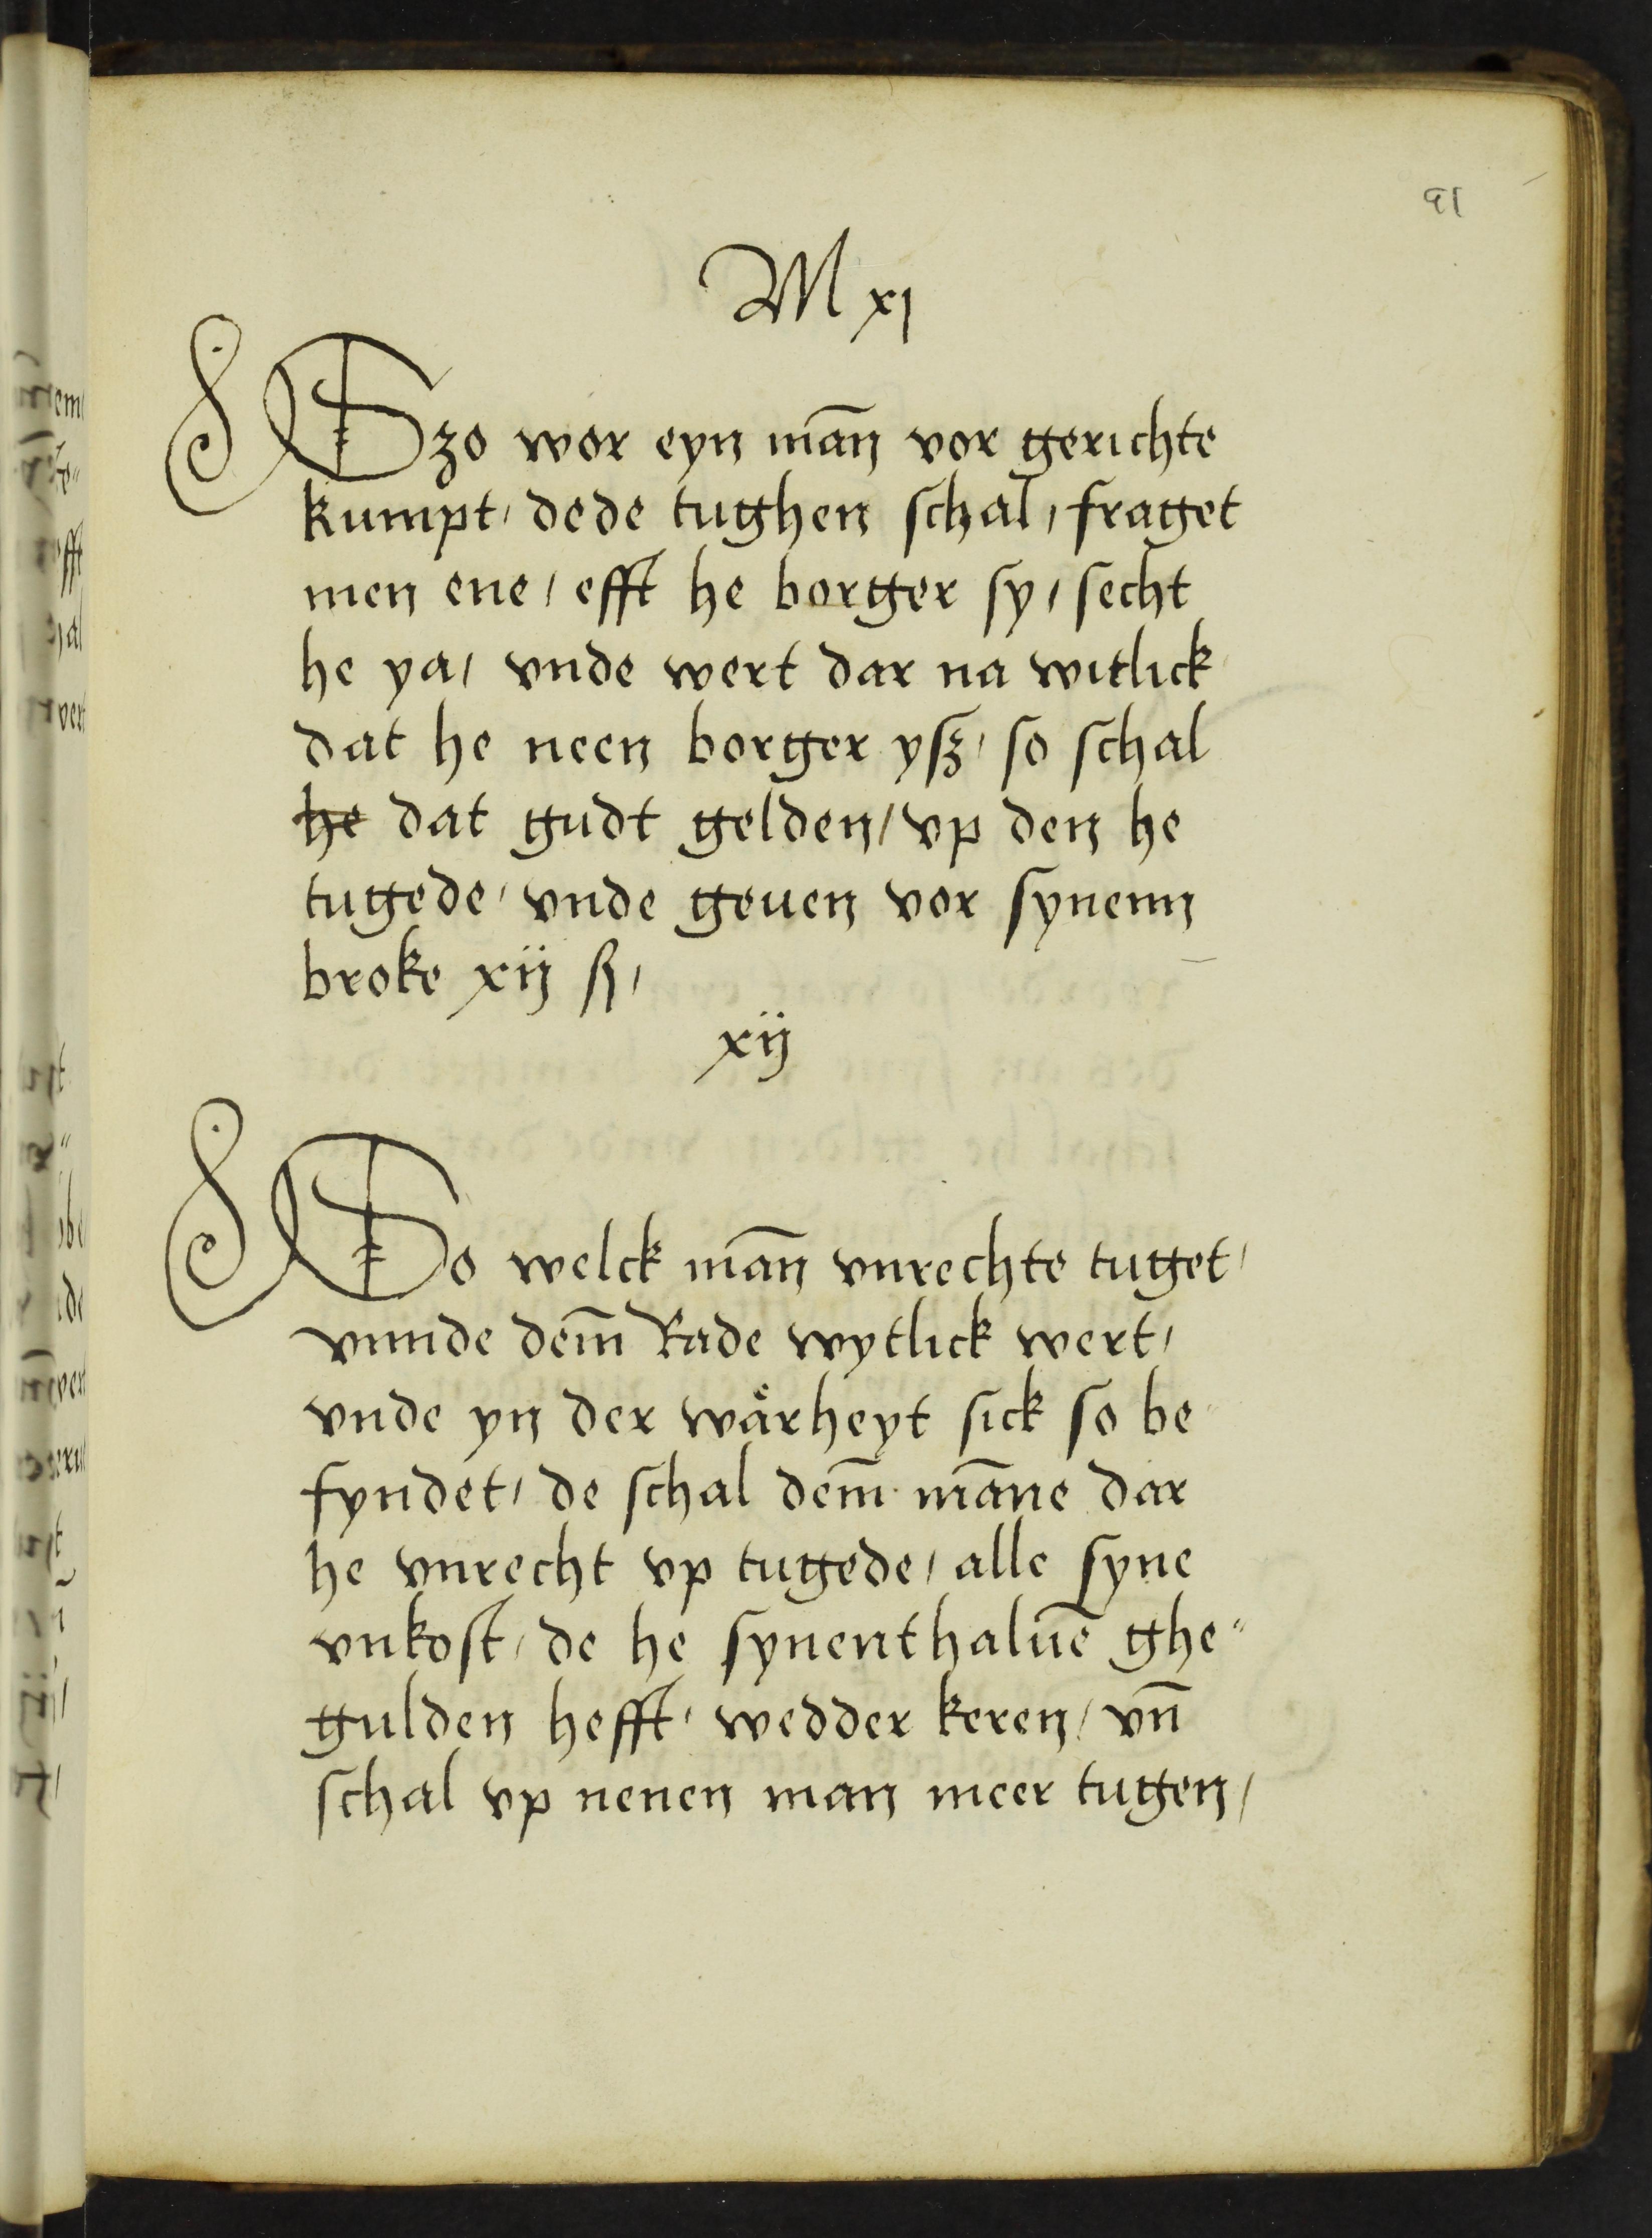 91
M xj
Szo wor eyn mañ vor gerichte
kumpt / dede tughen schal / fraget
men ene / efft he borger sy / secht
he ya / vnde wert dar na witlick
dat he neen borger ysz / so schal
he dat gudt gelden / vp den he
tugede / vnde geuen vor synenn
broke xij ß /
xij
So welck mañ vnrechte tuget /
vnnde dem̄ Rade wytlick wert /
vnde yn der waͤrheyt sick so be
fyndet / de schal dem̄ māne dar
he vnrecht vp tugede / alle syne
vnkost / de he synenthaluē ghe"
gulden hefft / wedder keren / vn̄
schal vp nenen man meer tugen /